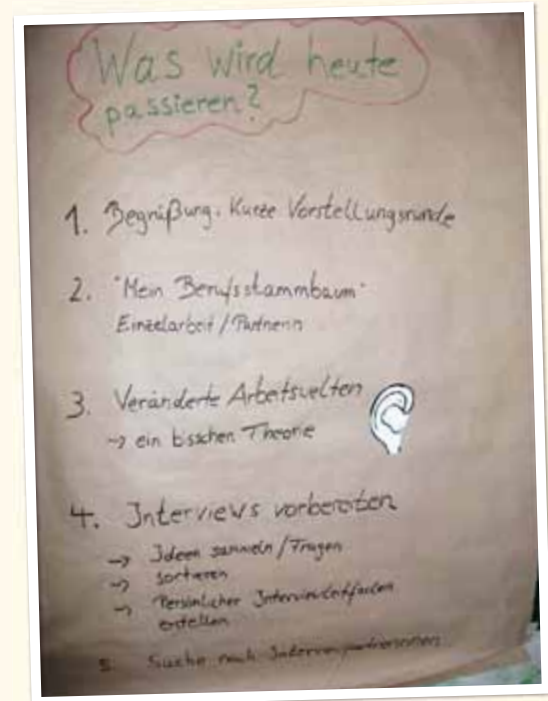 Was wird heute
passieren?
1. Begrüßung. Kurze Vorstellungsrunde
2. "Mein Berufsstammbaum"
Einzelarbeit / Partnerin
3. Veränderte Arbeitswelten
~> ein bisschen Theorie
4. Interviews vorbereiten
~> Ideen sammeln / Fragen
~> sortieren
~> Persönlicher Interviewleitfaden
erstellen
5. Suche nach Interviewpartnerinnen